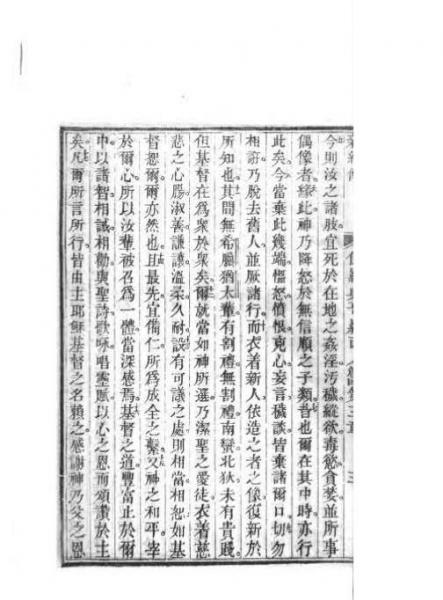 今則汝之諸肢宜死於在地之姦淫汚穢縱欲毒慾貪婪並所事
偶像者緣此神乃降怒於無信順之子類昔也爾在其中時亦行
此矣今當棄此幾端慍怒憤恨克心妄言穢談皆棄諸爾口切勿
相誑乃脫去舊人並厥諸行而衣着新人依造之者之像復新於
所知也其間無希臘猶太輩有割禮無割禮南蠻北狄未有貴賤
但基督在為衆於衆矣爾就當如神所選乃潔聖之愛徒衣着慈
悲之心膓淑善謙讓溫柔久耐設有可議之處則相當相恕如基
督恕爾爾亦然也且最先宜備仁所為成全之繫又神之和平宰
於爾心所以汝輩被召為一體當深感焉基督之道豐富止於爾
中以諸智相誡相勸與聖詩歌咏唱靈賦以心之恩而頌讚於主
矣凡爾所言所行皆由主耶穌基督之名賴之感謝神乃父之恩